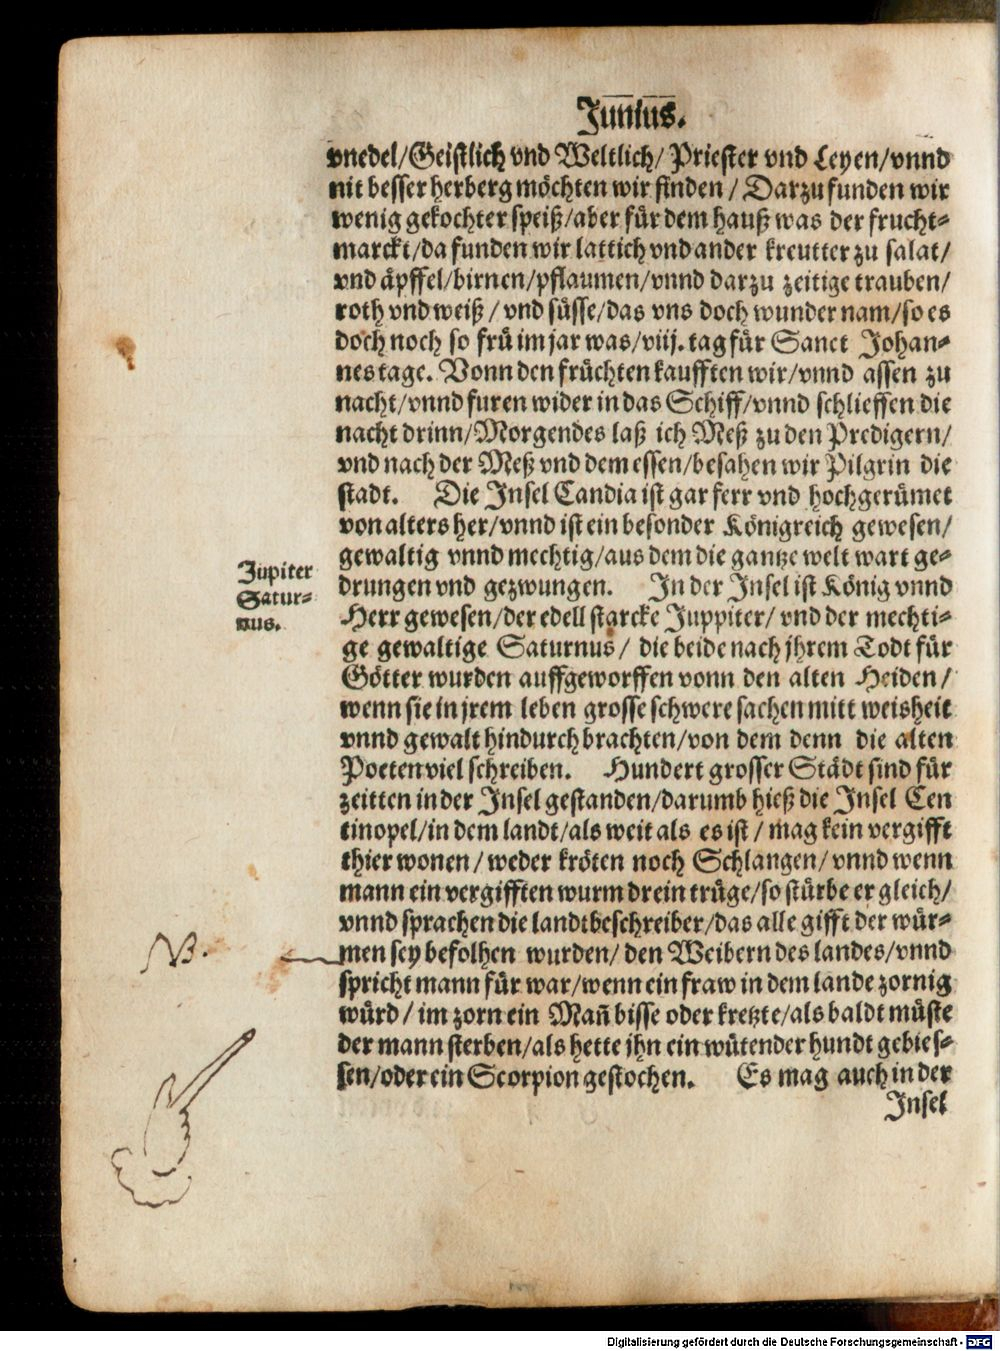 Junius.
vnedel/Geistlich vnd Weltlich/ Priester vnd Leyen/vnnd
nit besser herberg möchten wir finden / Darzu funden wir
wenig gekochter speiß/aber für dem hauß was der frucht-
marckt/da funden wir lattich vnd ander kreutter zu salat/
vnd äpffel/birnen/pflaumen/vnnd darzu zeitige trauben/
roth vnd weiß / vnd süsse/das vns doch wunder nam/so es
doch noch so frü im jar was/viij. tag für Sanct Johan-
nes tage. Vonn den früchten kaufften wir/vnnd assen zu
nacht/vnnd furen wider in das Schiff/vnnd schlieffen die
nacht drinn/Morgendes laß ich Meß zu den Predigern/
vnd nach der Meß vnd dem essen/besahen wir Pilgrin die
stadt. Die Insel Candia ist gar ferr vnd hochgerümet
von alters her/vnnd ist ein besonder Königreich gewesen/
gewaltig vnnd mechtig/aus dem die gantze welt wart ge-
drungen vnd gezwungen. In der Insel ist König vnnd
Herr gewesen/der edell starcke Juppiter/ vnd der mechti-
ge gewaltige Saturnus / die beide nach jhrem Todt für
Götter wurden auffgeworffen vonn den alten Heiden /
wenn sie in jrem leben grosse schwere sachen mitt weisheit
vnnd gewalt hindurch brachten/von dem denn die alten
Poeten viel schreiben. Hundert grosser Städt sind für
zeitten in der Insel gestanden/darumb hieß die Insel Cen
tinopel/in dem landt/als weit als es ist / mag kein vergifft
thier wonen / weder kröten noch Schlangen/ vnnd wenn
mann ein vergifften wurm drein trüge/so stürbe er gleich/
vnnd sprachen die landtbeschreiber/das alle gifft der wür-
men sey befolhen wurden/ den Weibern des landes/vnnd
spricht mann für war/wenn ein fraw in dem lande zornig
würd / im zorn ein Mañ bisse oder kretzte/als baldt müste
der mann sterben/als hette jhn ein wütender hundt gebies-
sen/oder ein Scorpion gestochen. Es mag auch in der
Insel
Jupiter
Satur-
nus.
NB.
Digitalisierung gefördert durch die Deutsche Forschungsgemeinschaft - DFG